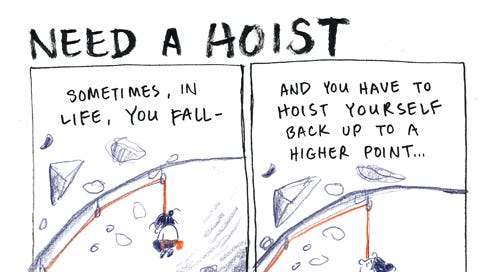 NEED A HOIST
SOMETIMES, IN
LIFE, YOU FALL-
AND YOU HAVE TO
HOIST YOURSELF
BACK UP TO A
HIGHER POINT...